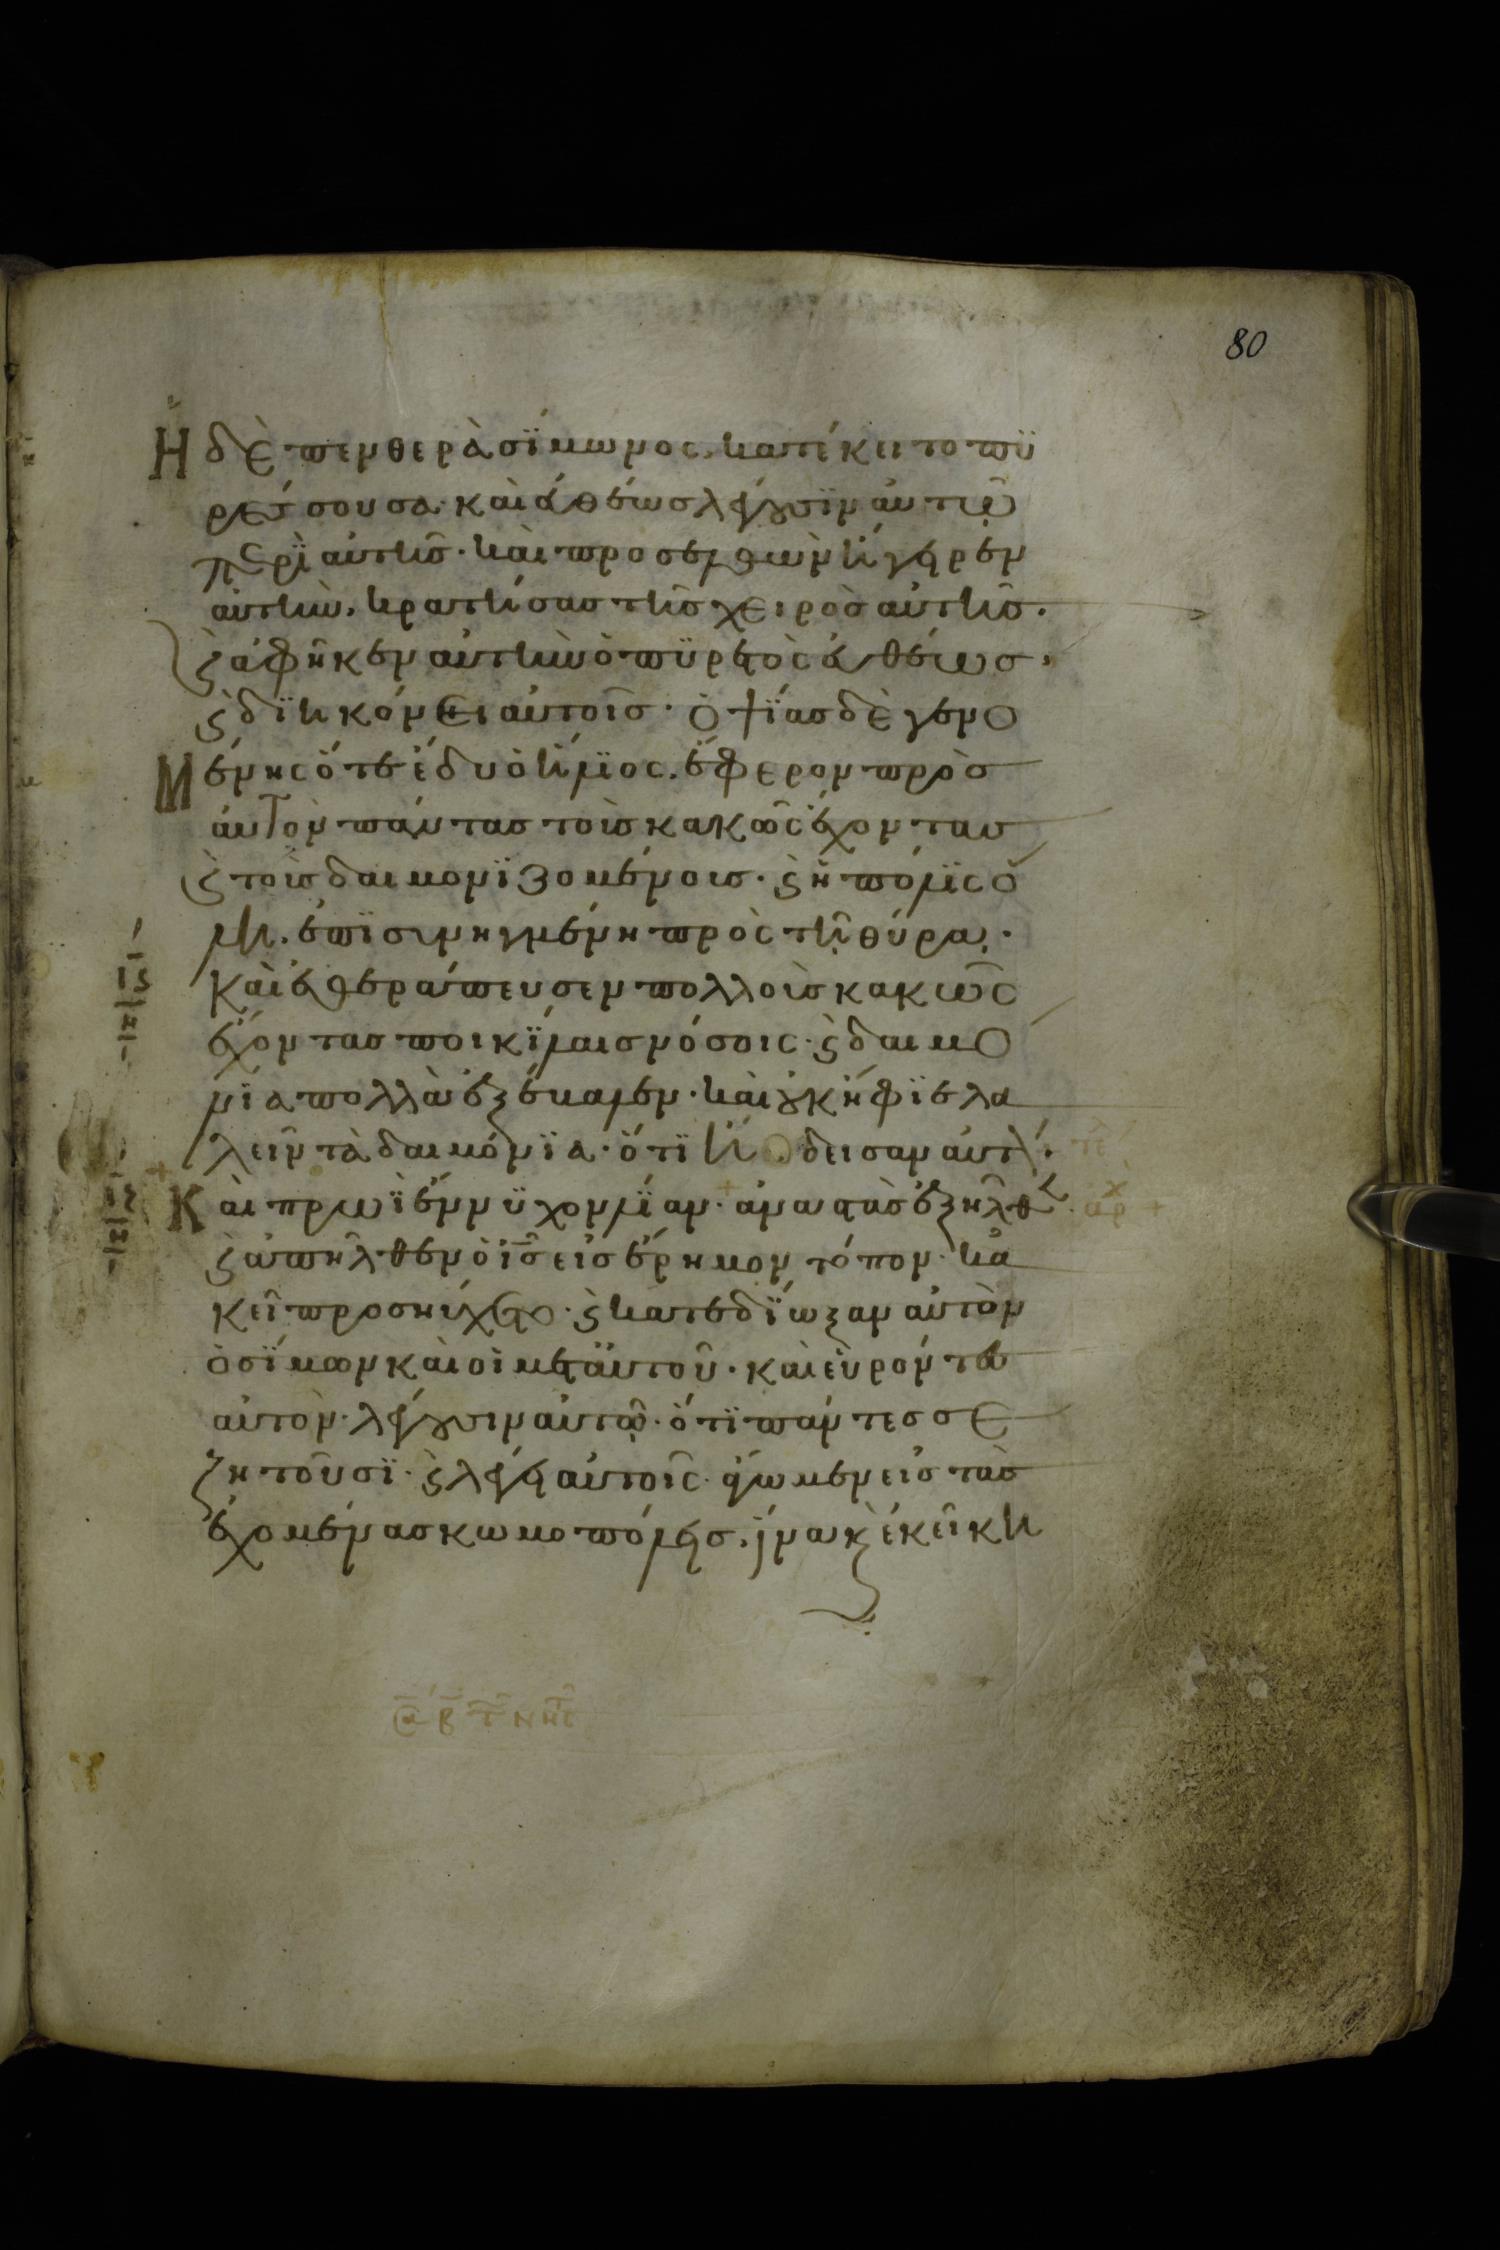 80
Ἡ δὲ πενθερὰ σΐμωνος, κατέκειτο πϋ
ρέσσουσα· καὶ εὐθέως λέγουσϊν αὐτῶ
περῒ αὐτῆς· καὶ προσελθὼν ἤγειρεν
αὐτὴν, κρατήσας τῆς χειρὸς αὐτῆς·
ϛ ἀφῆκεν αὐτὴν ὁ πϋρετὸς εὐθέως·
ϛ δϊηκόνει αὐτοῖς· ὀψΐας δὲ γενο
Μένης ὅτε ἔδυ ὁ ἥλϊος, ἔφερον πρὸς
αὐτὸν πάντας τοὺς κακῶς ἔχοντας
ϛ τοὺς δαιμονϊζομένους· ϛ ἡ πόλϊς ὅ
λη, ἐπϊσυνηγμένη πρὸς τὴν θύραν·
Καὶ ἐθεράπευσεν πολλοὺς κακῶς
ἔχοντας ποικΐλαις νόσοις· ϛ δαιμο
νϊα πολλὰ ἐξέβαλεν· καὶ οὐκ ἤφϊε λα
λεῖν τὰ δαιμόνϊα· ὅτϊ ἤδεισαν αὐτόν· τε
Καὶ πρωῒ ἔννϋχον λΐαν· ἀναστὰς ἐξῆλθεν· αρχ
ϛ ἀπῆλθεν ὁ ις εἰς ἔρημον τόπον· κα
κεῖ προσηύχετο· ϛ κατεδΐωξαν αὐτὸν
ὁ σΐμων καὶ οἱ μετ αὐτοῦ· καὶ εὑρόντες
αὐτὸν· λέγουσιν αὐτῶ· ὅτϊ πάντες σε
ζητοῦσϊ· ϛ λέγει αὐτοῖς· ἄγωμεν εἰς τὰς
ἐχομένας κωμοπόλεις, ἵνα κ ἐκεῖ κη